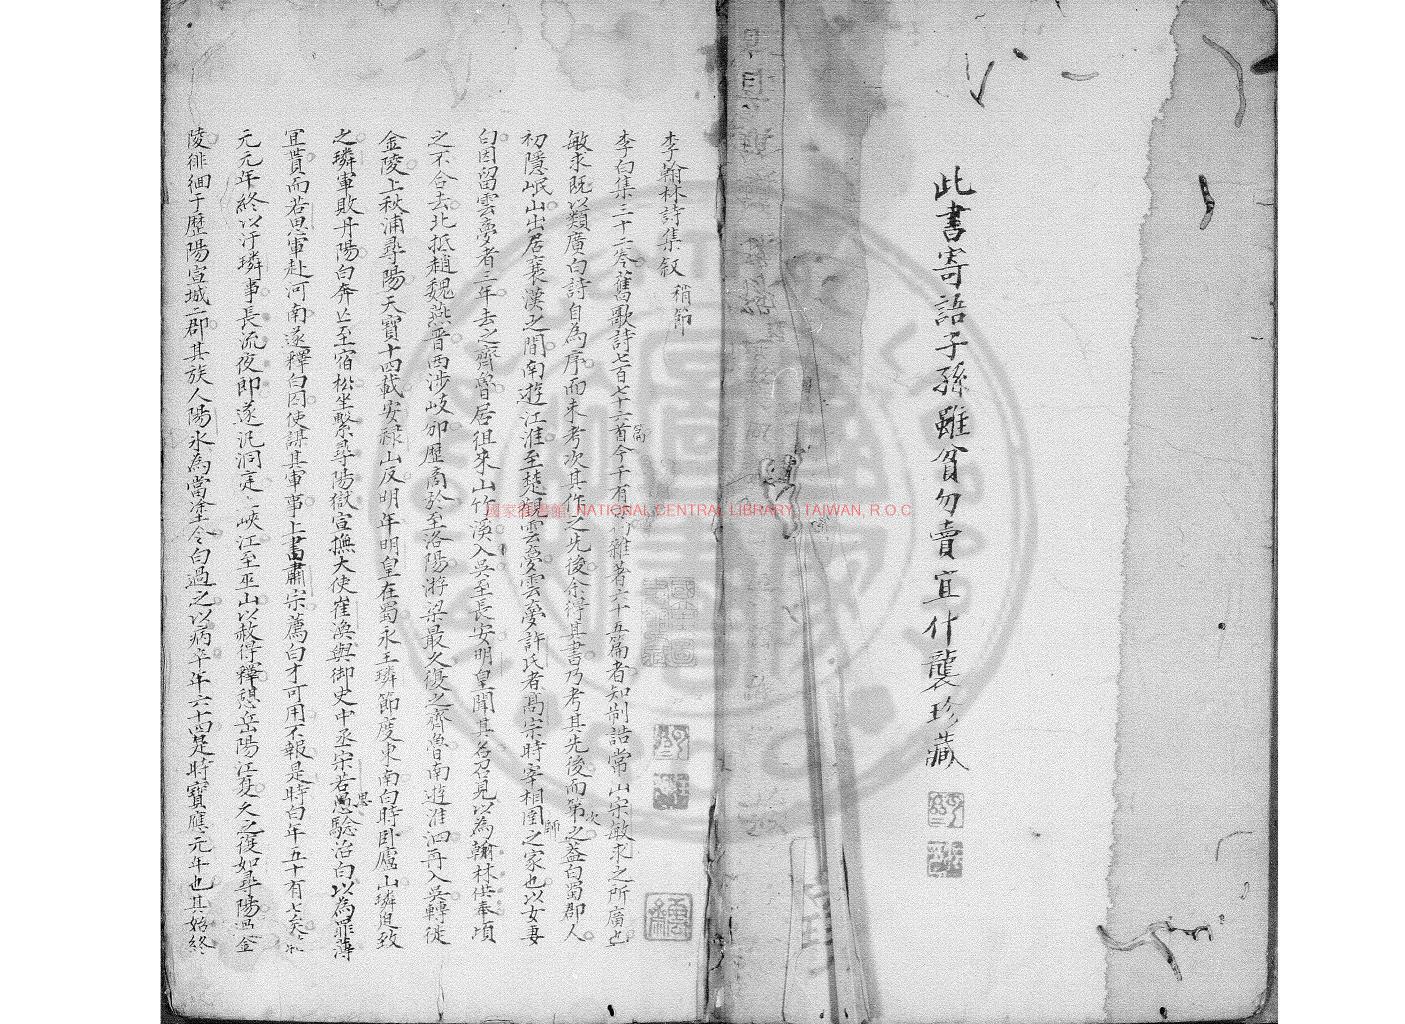 此書寄語子孫雖貧勿賣宜什襲珍藏
李翰林詩集叙
稍節
李白集三十六卷舊歌詩七百七十六首今千有雜著六十五篇者知制誥常山宋敏求之所廣也
篇
敏求既以類廣白詩自為序而未考次其作之先後余得其書乃考其先後而第之蓋白蜀郡人
次
初隱岷山出居襄漢之間南遊江淮至楚觀雲夢雲夢許氏者高宗時宰相圉之家也以女妻
師
白因留雲夢者三年去之齊魯居徂來山竹溪入吳至長安明皇聞其名召見以為翰林供奉頃
之不合去北抵趙魏燕晉西涉岐邠歷商於至洛陽游梁最久復之齊魯南遊淮泗再入吳轉徙
金陵上秋浦尋陽天寶十四載安祿山反明年明皇在蜀永王璘節度東南白時臥廬山璘迫致
之璘軍敗丹陽白奔亡至宿松坐繫尋陽獄宣撫大使崔渙與御史中丞宋若愚驗治白以為罪薄
思
宜貰而若思軍赴河南遂釋白囚使謀其軍事上書肅宗薦白才可用不報是時白年五十有七矣
元元年終以汙璘事長流夜郎遂汎洞定峽江至巫山以赦得釋憩岳陽江夏久之復如尋陽過金
陵徘徊于歷陽宣城二郡其族人陽氷為當塗令白過之以病卒年六十四是時寶應元年也其始終
國家圖書館 NATIONAL CENTRAL LIBRARY, TAIWAN, R.O.C